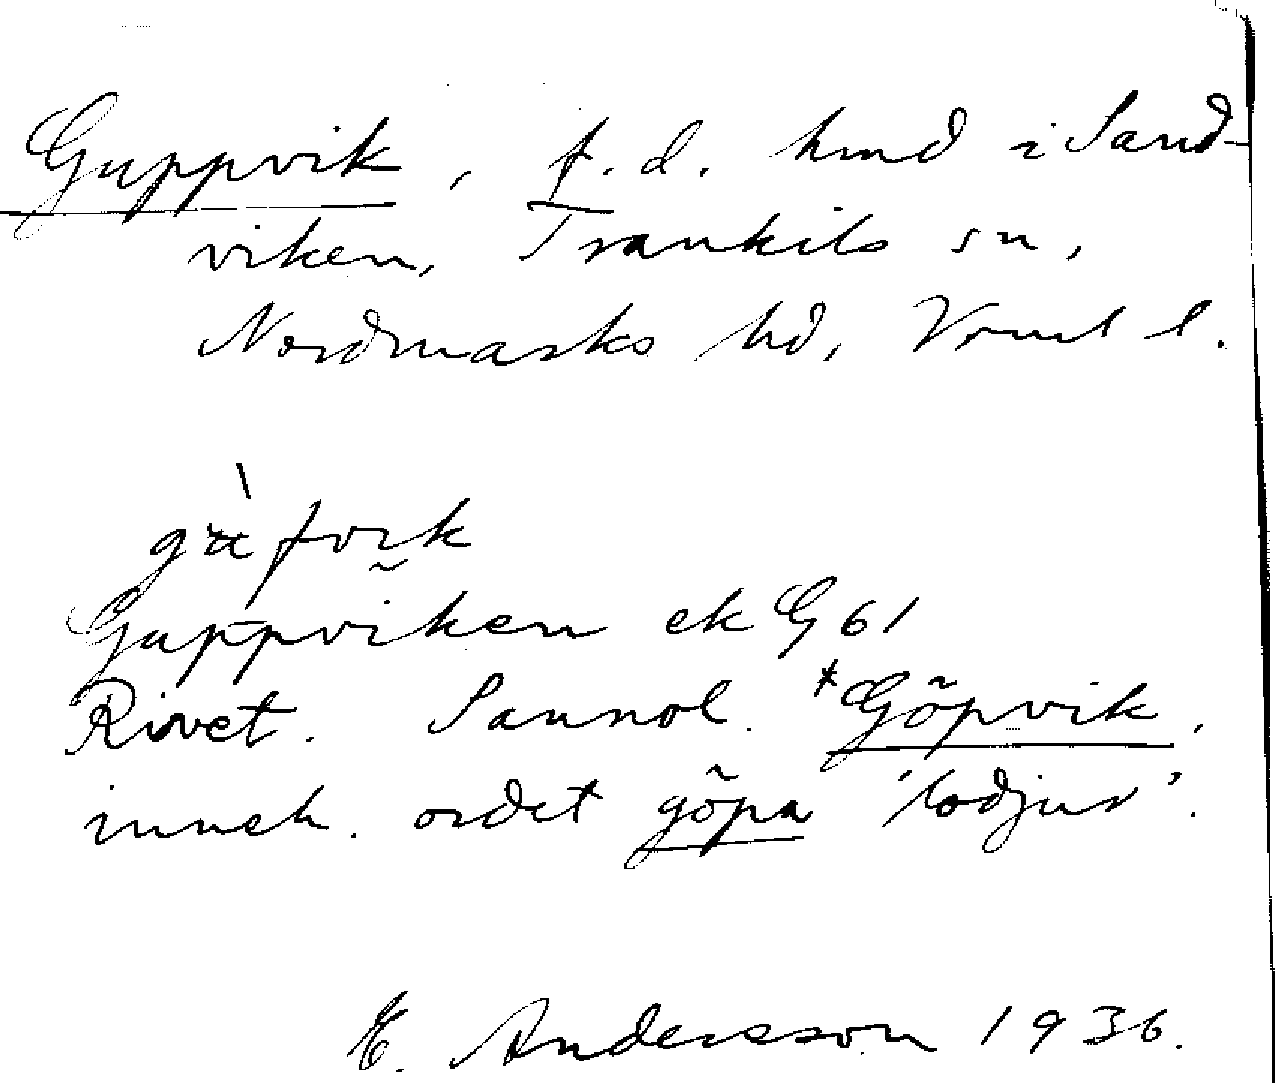 Guppvik, f.d. hmd i Sand-
viken, Trankils sn,
Nordmarks hd, Vrml l.
Guppviken ek G 61
Rivet. Sannol. *Göpvik,
inneh. ordet göpa 'lodjur'.
E. Andersson 1936.